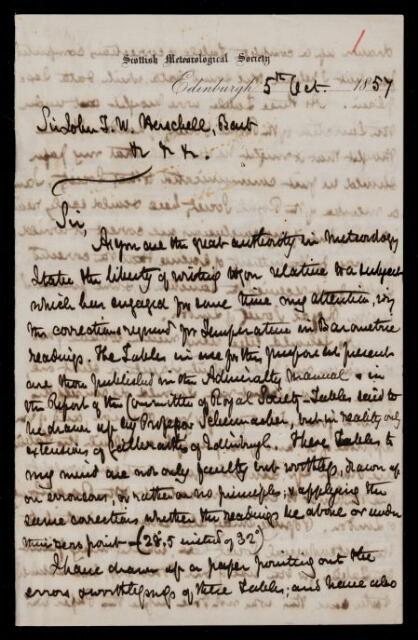 1
Scottish Meteorological Society
Edinburgh 5th Oct. 1857
Sir John F. W. Herschell, Bart
&c &c &c.
Sir,
As you are the great authority in Meteorology
I take the liberty of writing to you relative to a subject
which has engaged for some time my attention, viz
the corrections required for Temperature in Barometric
readings. The Tables in use for this purpose at present
are those published in the Admiralty Manual & in
the Report of the Committee of Royal Society - Tables said to
be drawn up by Professor Schumacher, but in reality only
extensions of Galbraith's of Edinburgh. These Tables to
my mind are not only faulty but worthless, drawn up
on erroneous, or rather on no principles; & applying the
same corrections whether the readings be above or under
their zero point - (28.5 instead of 32°)
I have drawn up a paper pointing out the
errors, & worthlessness of these Tables; and have also